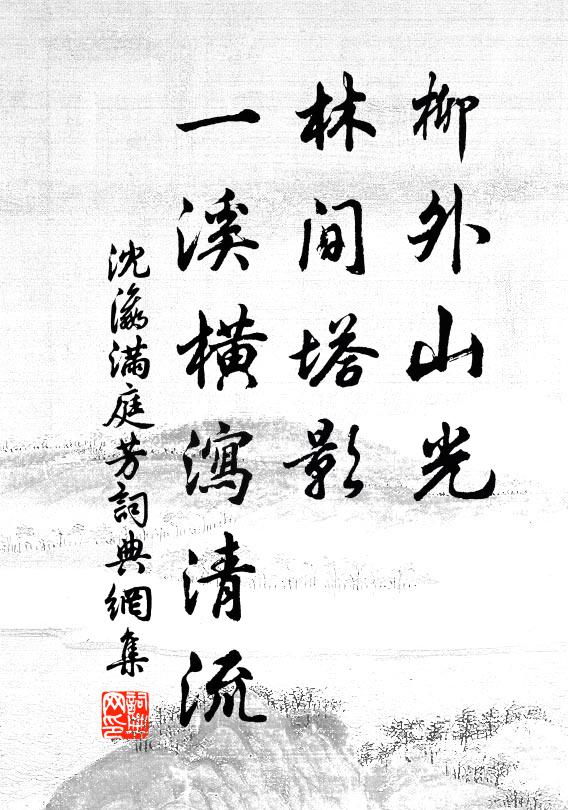 柳外山光
林間塔影
一溪橫瀉清流
沈瀛滿庭芳詞典網集
詞典網印